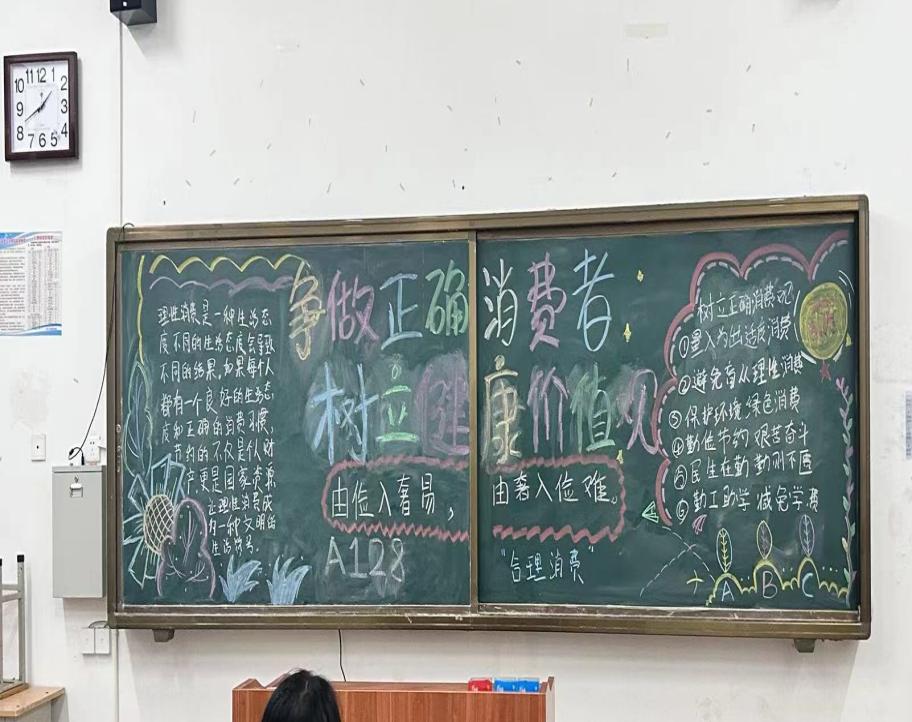 争做正确消费者
树立健康价值观
理性消费是一种生活态
度不同的生活态度会导致
不同的结果,如果每个人
都有一个良好的生活态
度和正确的消费习惯,
节约的不仅是个人财
产更是国家资源
让理性消费成
为一种文明的
生活符号。
由俭入奢易,
由奢入俭难。
A128
"合理消费"
树立正确消费观
①量入为出适度消费
②避免盲从理性消费
③保护环境绿色消费
④勤俭节约艰苦奋斗
⑤民生在勤勤则不匮
⑥勤工助学减免学费
A B C
11 12 1
10 2
9 3
8 4
7 6 5